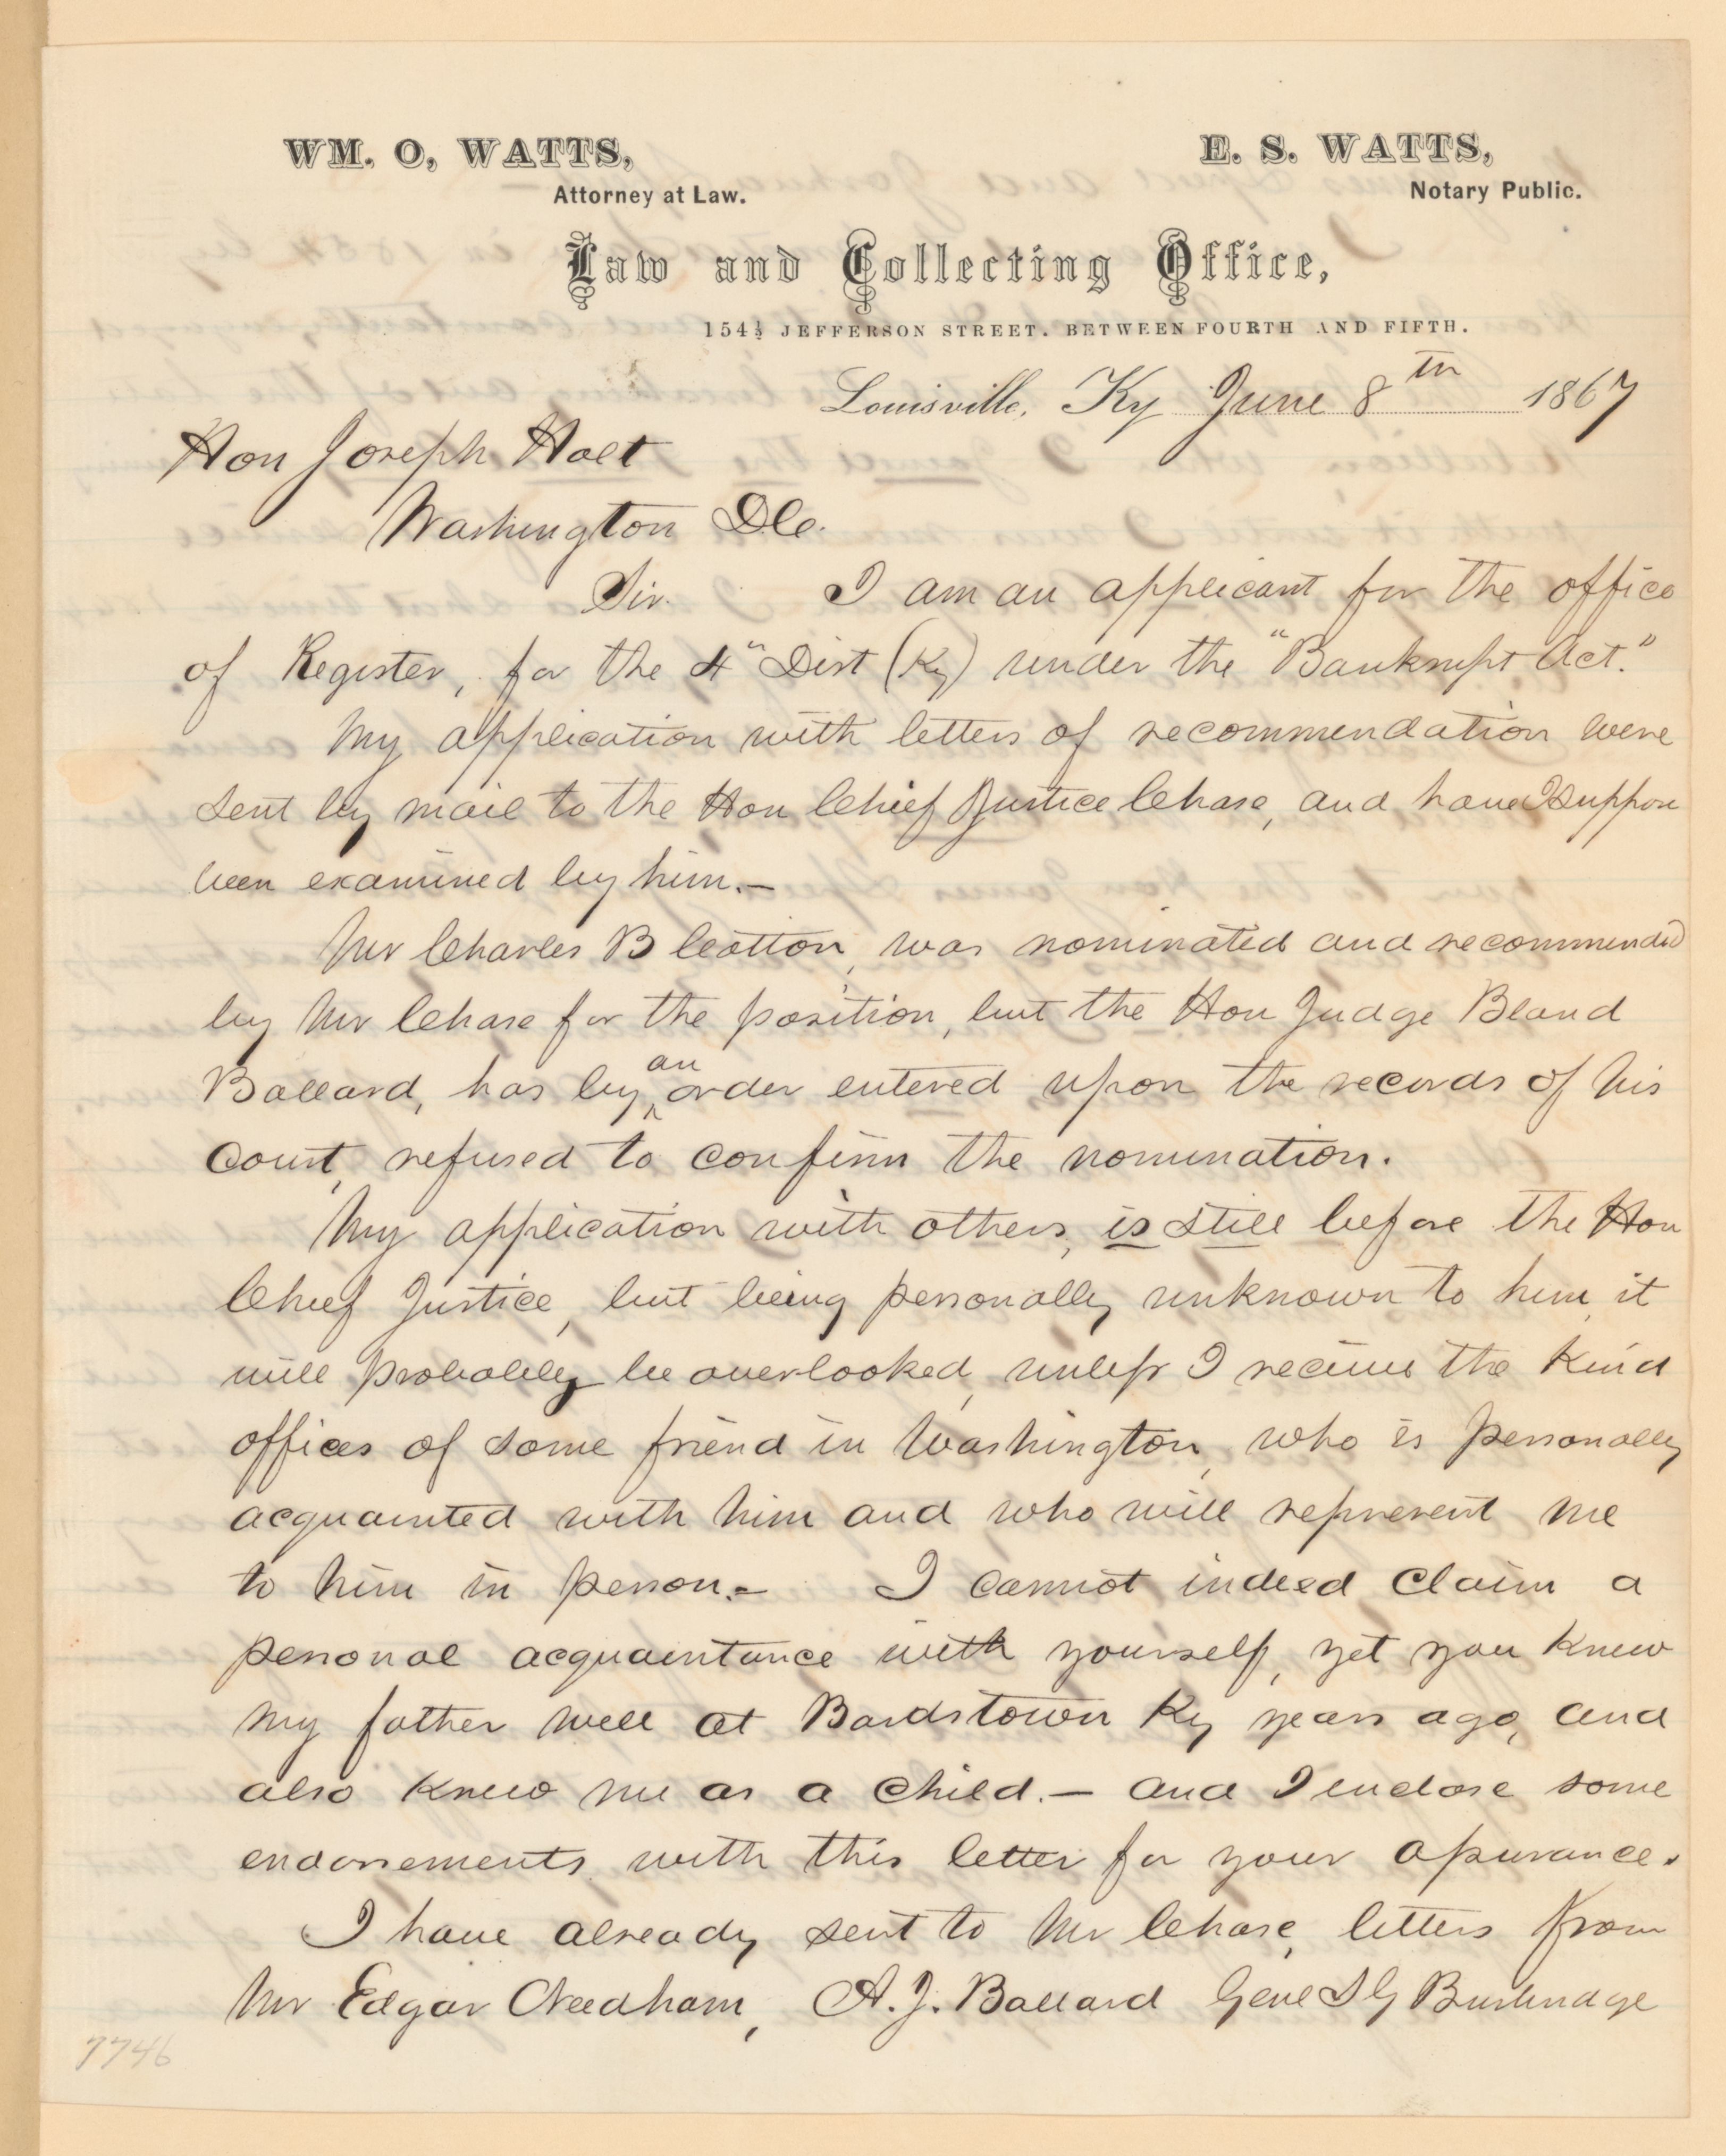 WM. O, WATTS,
Attorney at Law.
E. S. WATTS,
Notary Public.
Law and Collecting Office,
154½ JEFFERSON STREET. BETWEEN FOURTH AND FIFTH.
Louisville, Ky June 8th 1867
Hon Joseph Holt
Washington DC.
Sir. I am an applicant for the office
of Register, for the 4" Dist (Ky) under the "Bankrupt Act."
My application with letters of recommendation were
sent by mail to the Hon Chief Justice Chase, and have I suppose
been examined by him.—
Mr Charles B Cotton, was nominated and recommended
by Mr Chase for the position, but the Hon Judge Bland
Ballard, has by an order entered upon the records of his
Court, refused to confirm the nomination.
My application with others, is still before the Hon
Chief Justice, but being personally unknown to him, it
will probably be overlooked, unless I receive the kind
offices of some friend in Washington, who is personally
acquainted with him and who will represent me
to him in person.— I cannot indeed claim a
personal acquaintance with yourself, yet you knew
my father well at Bardstown Ky years ago, and
also knew me as a child.— and I enclose some
endorsements with this letter for your assurance.
I have already sent to Mr Chase, letters from
Mr Edgar Needham, A. J. Ballard Genl S G Burbridge
7746